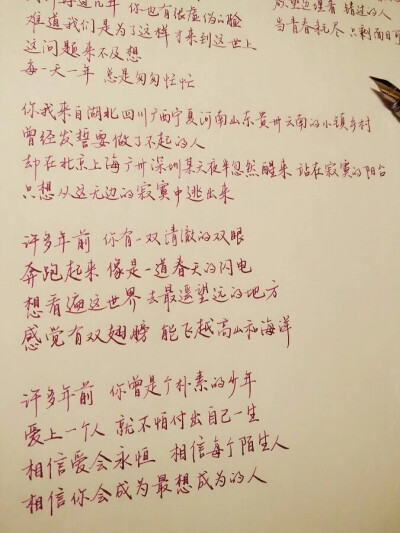 再过几年 你也有张虚伪的脸
难道我们是为了这样 才来到这世上
这问题来不及想
每一天一年 总是匆匆忙忙
错过的人
当青春耗尽 只剩面目可
你我来自湖北四川广西宁夏河南山东贵州云南的小镇乡村
曾经发誓要做了不起的人
却在北京上海广州深圳某天夜半忽然醒来 站在寂寞的阳台
只想从这无边的寂寞中逃出来
许多年前 你有一双清澈的双眼
奔跑起来 像是一道春天的闪电
想看遍这世界 去最遥望远的地方
感觉有双翅膀 能飞越高山和海洋
许多年前 你曾是个朴素的少年
爱上一个人 就不怕付出自己一生
相信爱会永恒 相信每个陌生人
相信你会成为最想成为的人